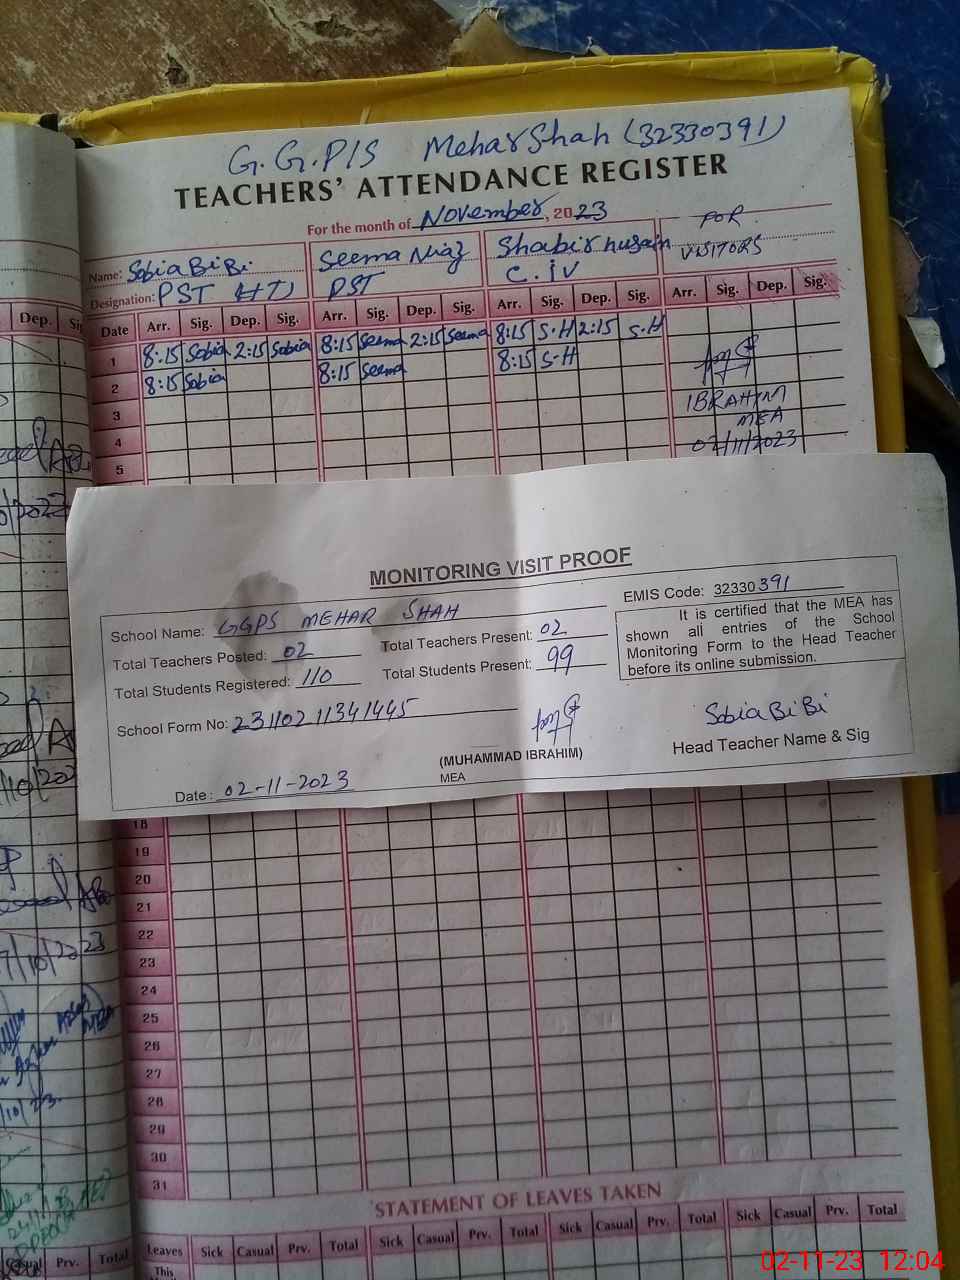 G.G.P/S Mehar Shah (32330391)
TEACHERS' ATTENDANCE REGISTER
For the month of November, 2023
Name: Sobia BiBi Seema Niaz Shabir husain FOR
VISITORS
Designation: PST (HT) PST C.iv
Date Arr. Sig. Dep. Sig. Arr. Sig. Dep. Sig. Arr. Sig. Dep. Sig. Arr. Sig. Dep. Sig.
1 8:15 Sobia 2:15 Sobia 8:15 Seema 2:15 Seema 8:15 S.H 2:15 S.H
2 8:15 Sobia 8:15 Seema 8:15 S.H
3 IBRAHIM
MEA
4 02/11/2023
5
MONITORING VISIT PROOF
School Name: GGPS MEHAR SHAH
EMIS Code: 32330391
Total Teachers Posted: 02 Total Teachers Present: 02
Total Students Registered: 110 Total Students Present: 99
It is certified that the MEA has
shown all entries of the School
Monitoring Form to the Head Teacher
before its online submission.
School Form No: 23110211341445
Sobia BiBi
(MUHAMMAD IBRAHIM)
MEA
Head Teacher Name & Sig
Date: 02-11-2023
18
19
20
21
22
23
24
25
26
27
28
29
30
31
STATEMENT OF LEAVES TAKEN
Leaves Sick Casual Prv. Total Sick Casual Prv. Total Sick Casual Prv. Total Sick Casual Prv. Total
This
Dep.
Casual Prv. Total
02-11-23 12:04